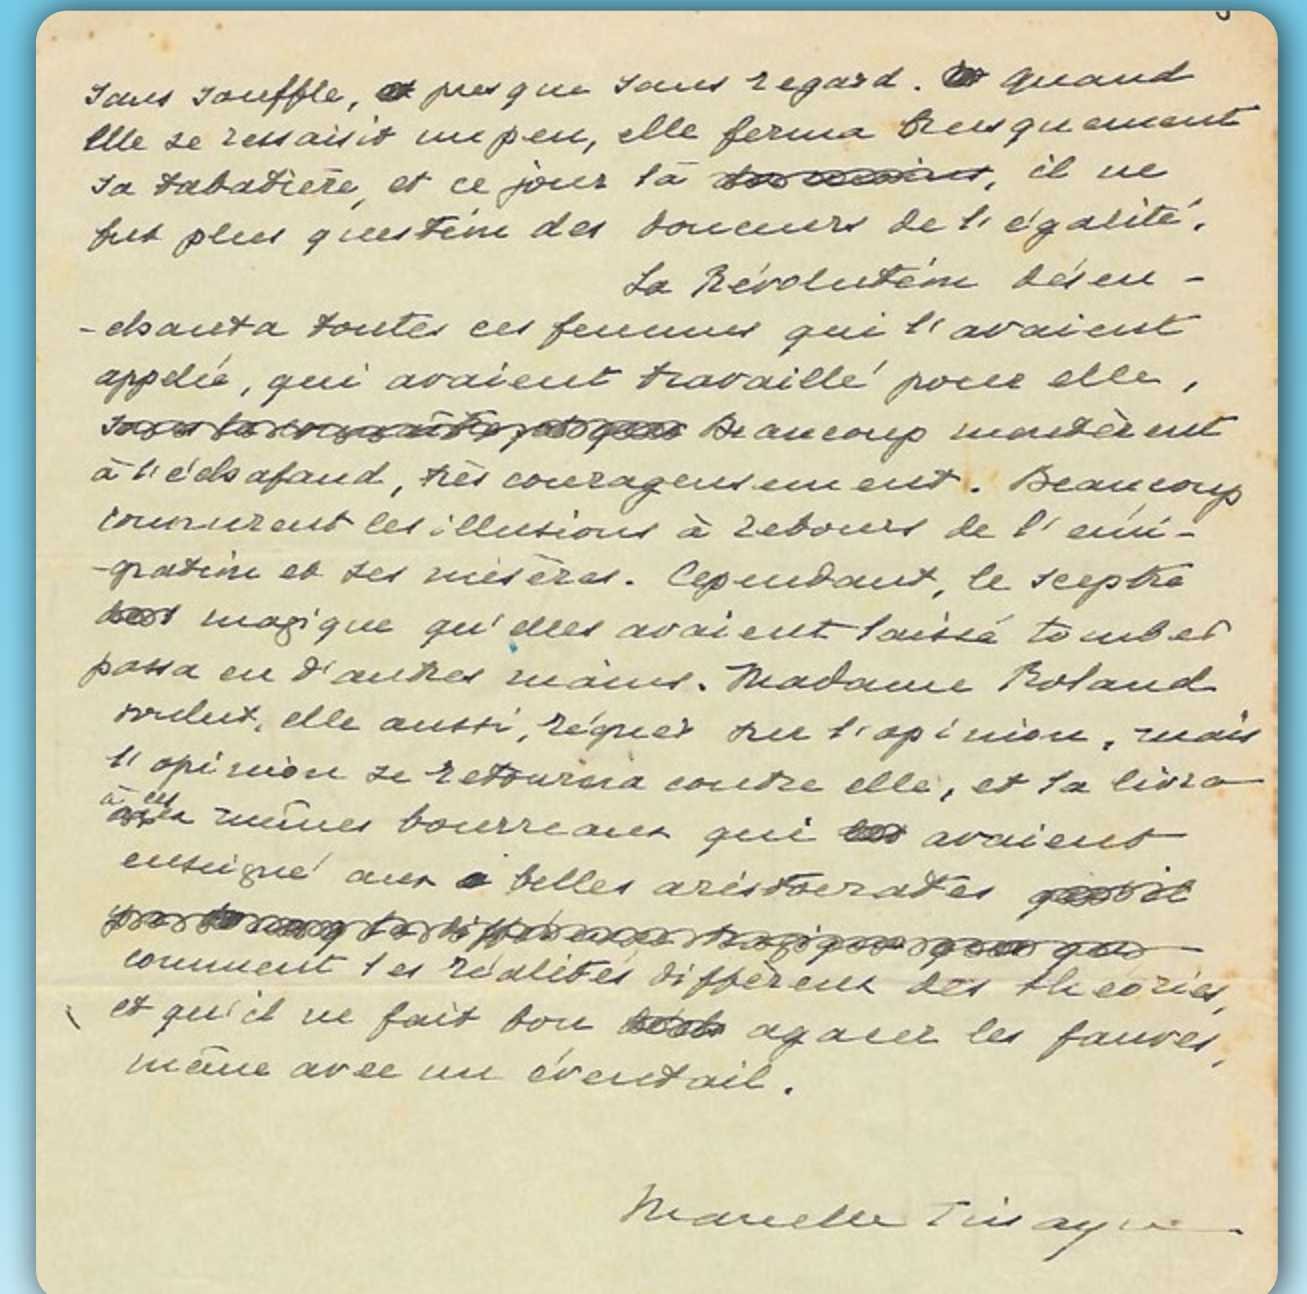 sans souffle, et presque sans regard. Et Quand
Elle se ressaisit un peu, elle ferma brusquement
sa tabatière, et ce jour là du moins, il ne
fut plus question des douceurs de l'égalité.
La Révolution désen-
-chanta toutes ces femmes qui l'avaient
appelée, qui avaient travaillé pour elle,
sans la connaître, et que Beaucoup montèrent
à l'échafaud, très courageusement. Beaucoup
connurent les illusions à rebours de l'émi-
-gration et ses misères. Cependant, le sceptre
magique qu'elles avaient laissé tomber
passa en d'autres mains. Madame Roland
voulut, elle aussi, régner sur l'opinion, mais
l'opinion se retourna contre elle, et la livra
à ces mêmes bourreaux qui avaient
enseigné aux belles aristocrates
la différence tragique que
comment les réalités diffèrent des théories,
et qu'il ne fait bon agacer les fauves,
même avec un éventail.
Marcelle Tinayre